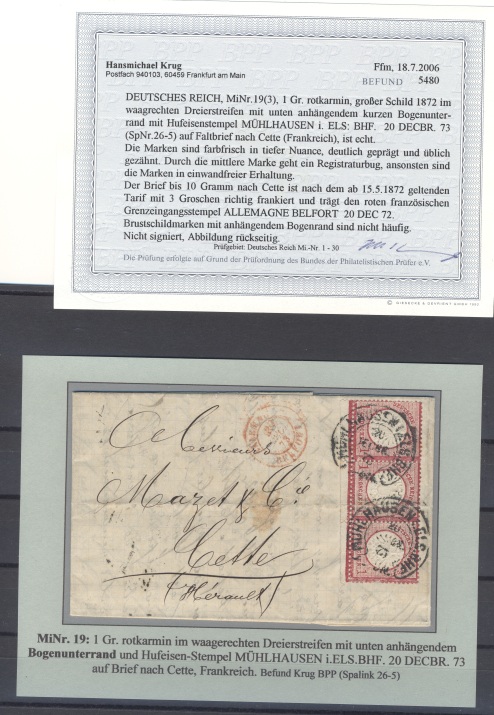 Hansmichael Krug
Postfach 940103, 60459 Frankfurt am Main
Ffm, 18.7.2006
BEFUND 5480
DEUTSCHES REICH, MiNr.19(3), 1 Gr. rotkarmin, großer Schild 1872 im
waagrechten Dreierstreifen mit unten anhängendem kurzen Bogenunter-
rand mit Hufeisenstempel MÜHLHAUSEN i. ELS: BHF. 20 DECBR. 73
(SpNr.26-5) auf Faltbrief nach Cette (Frankreich), ist echt.
Die Marken sind farbfrisch in tiefer Nuance, deutlich geprägt und üblich
gezähnt. Durch die mittlere Marke geht ein Registraturbug, ansonsten sind
die Marken in einwandfreier Erhaltung.
Der Brief bis 10 Gramm nach Cette ist nach dem ab 15.5.1872 geltenden
Tarif mit 3 Groschen richtig frankiert und trägt den roten französischen
Grenzeingangsstempel ALLEMAGNE BELFORT 20 DEC 72.
Brustschildmarken mit anhängendem Bogenrand sind nicht häufig.
Nicht signiert, Abbildung rückseitig.
Prüfgebiet: Deutsches Reich Mi.-Nr. 1 - 30
Die Prüfung erfolgte auf Grund der Prüfordnung des Bundes der Philatelistischen Prüfer e.V.
Messieurs
Mazet & Cie
Cette
(Hérault)
MiNr. 19: 1 Gr. rotkarmin im waagerechten Dreierstreifen mit unten anhängendem
Bogenunterrand und Hufeisen-Stempel MÜHLHAUSEN i.ELS.BHF. 20 DECBR. 73
auf Brief nach Cette, Frankreich. Befund Krug BPP (Spalink 26-5)